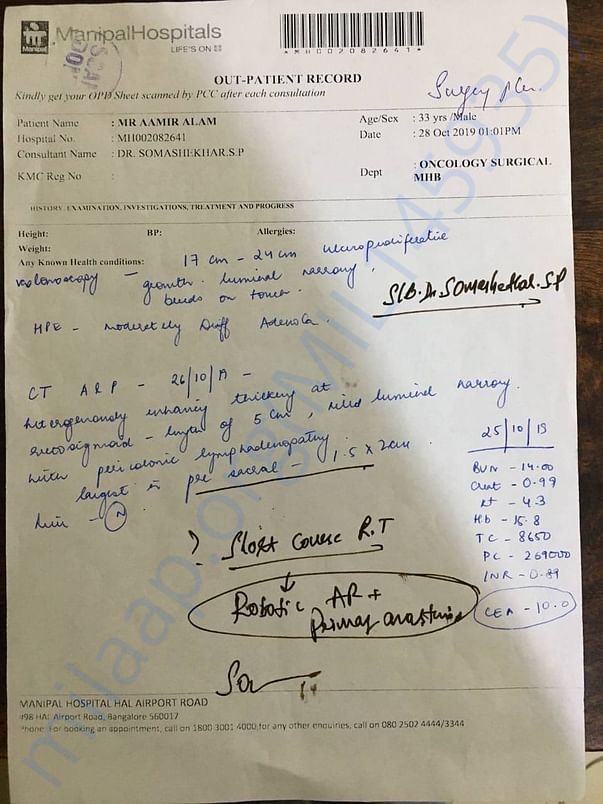 ManipalHospitals
LIFE'S ON
*MH002082641*
OUT-PATIENT RECORD
Kindly get your OPD Sheet scanned by PCC after each consultation
Patient Name : MR AAMIR ALAM
Age/Sex : 33 yrs /Male
Hospital No. : MH002082641
Date : 28 Oct 2019 01:01PM
Consultant Name : DR. SOMASHEKHAR.S.P
KMC Reg No :
Dept : ONCOLOGY SURGICAL
MHB
HISTORY, EXAMINATION, INVESTIGATIONS, TREATMENT AND PROGRESS
Height: BP: Allergies:
Weight:
Any Known Health conditions: 17 cm - 24 cm
growth. luminal
bleeds on touch.
S/B. Dr. Somashekhar. S.P
HPE -
CT A&P - 26/10/19 -
thickening at
rectosigmoid - length of 5 cm, luminal
with pericolonic lymphadenopathy
largest is pre sacral - 1.5 x 2 cm.
25/10/19
BUN - 14.00
Creat - 0.99
- 4.3
Hb - 15.8
TC - 8650
PC - 269000
INR - 0.89
CEA - 10.0
? Short Course R.T
↓
Robotic AR +
Primary
MANIPAL HOSPITAL HAL AIRPORT ROAD
#98 HAL Airport Road, Bangalore 560017
Phone: For booking an appointment, call on 1800 3001 4000 for any other enquiries, call on 080 2502 4444/3344